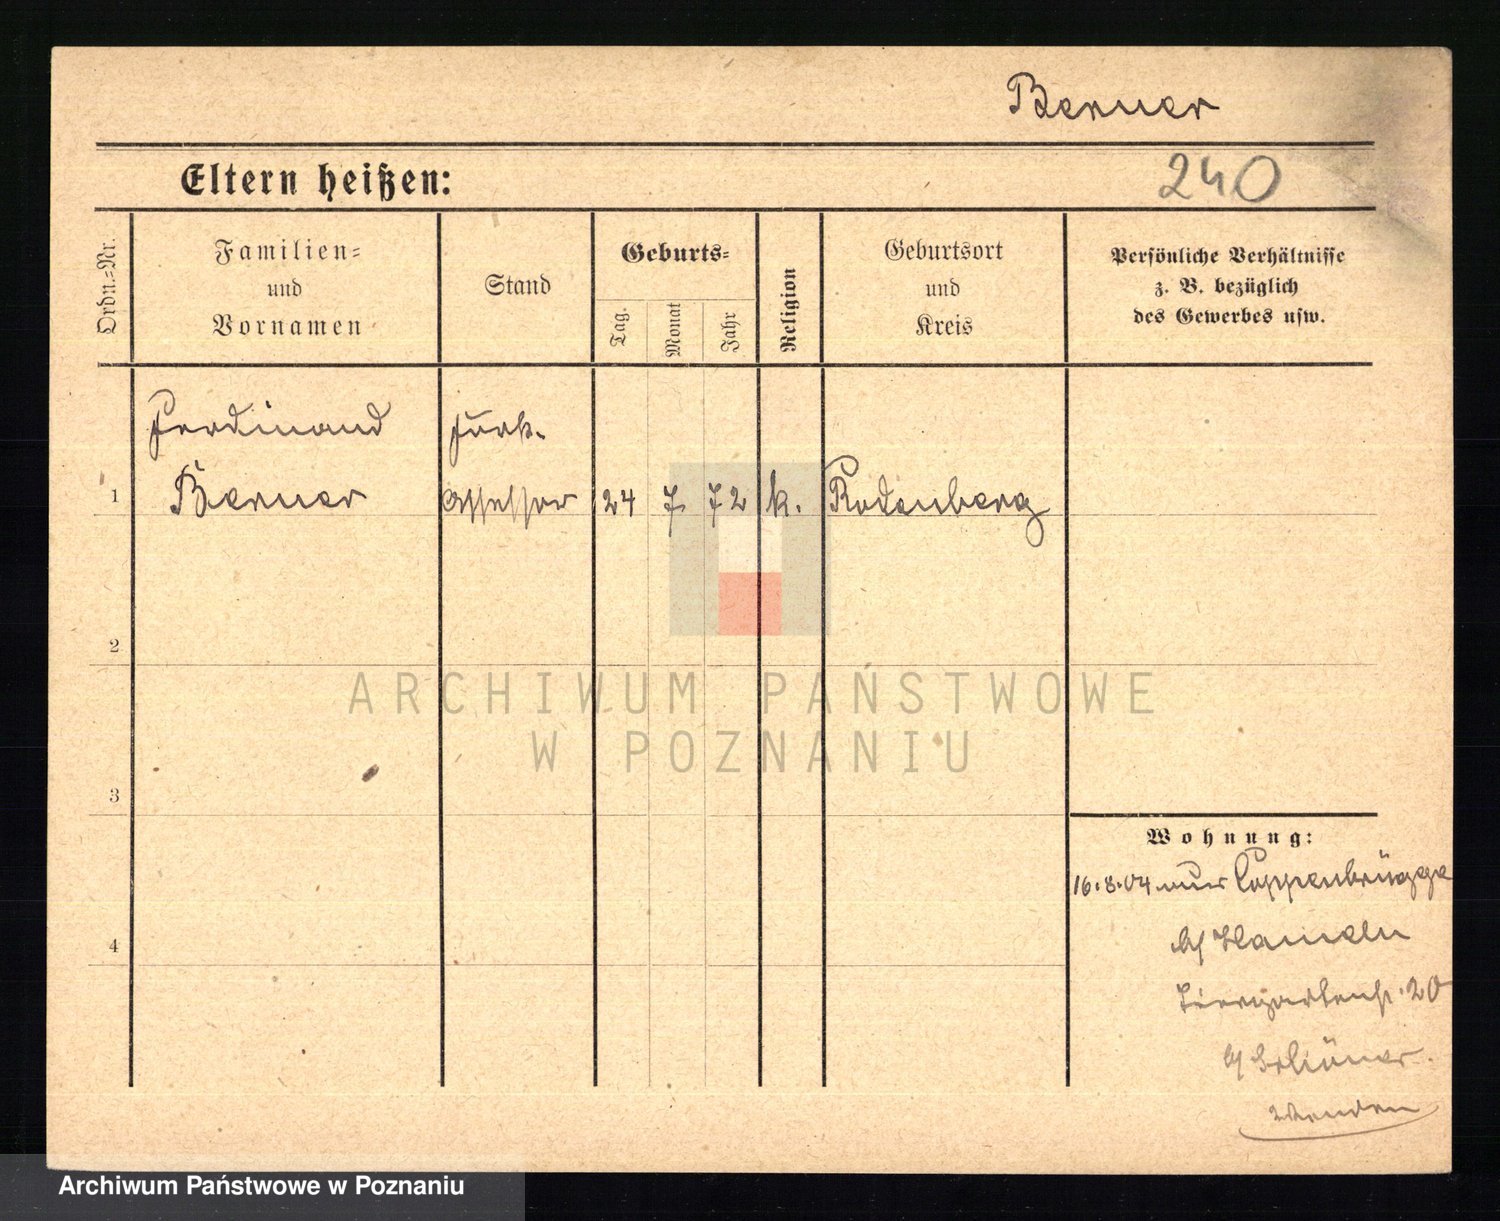 Berner
240
Eltern heißen:
Ordn.-Nr.
Familien-
und
Vornamen
Stand
Geburts-
Tag.
Monat
Jahr
Religion
Geburtsort
und
Kreis
Persönliche Verhältnisse
z. B. bezüglich
des Gewerbes usw.
Ferdinand
1 Berner Assessor 24 7. 72 k. Rodenberg
2
ARCHIWUM PAŃSTWOWE
W POZNANIU
3
Wohnung:
16.8.04 Coppenbrügge
4
b/ Hameln
Tiergartenstr. 20
b/
wenden
Archiwum Państwowe w Poznaniu